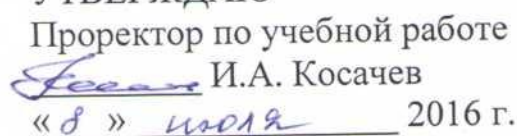 УТВЕРЖДАЮ
Проректор по учебной работе
И.А. Косачев
« 8 » июля 2016 г.